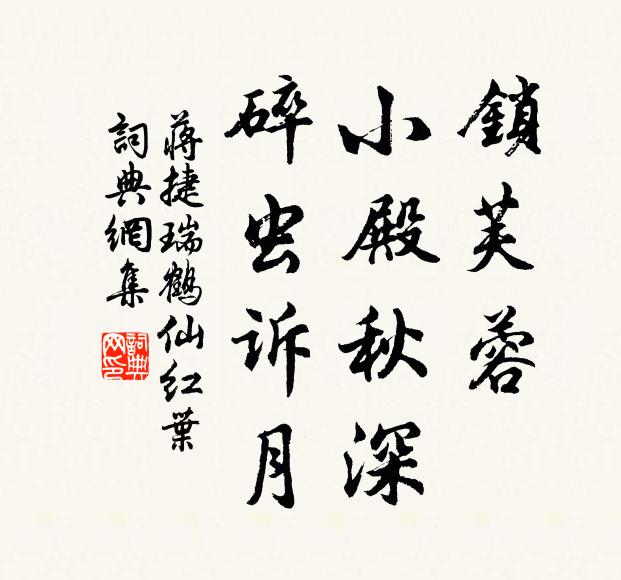 鎖芙蓉
小殿秋深
碎虫诉月
蔣捷瑞鶴仙红葉
詞典網集
詞典
网印